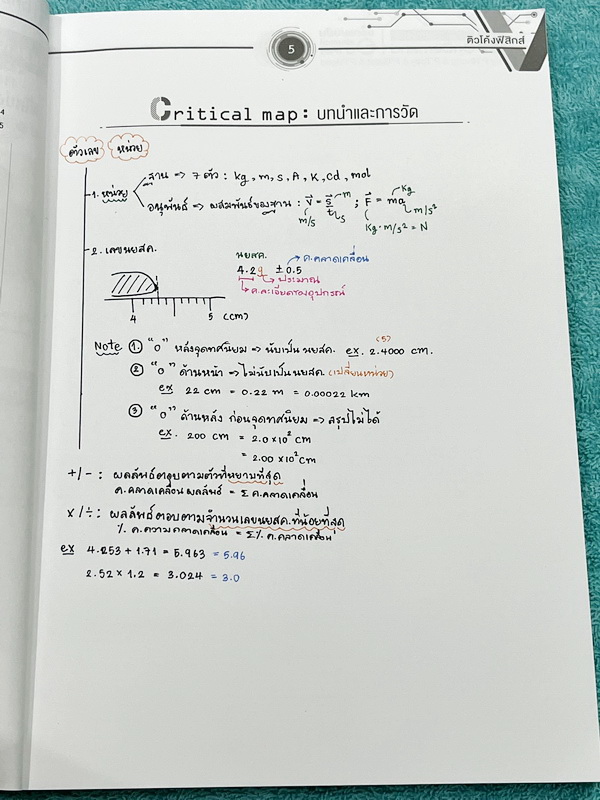 5
ติวโค้งฟิสิกส์
Critical map : บทนำและการวัด
ตัวเลข หน่วย
1. หน่วย
ฐาน => 7 ตัว : kg, m, s, A, K, cd, mol
อนุพันธ์ => ผสมพันธ์ของฐาน : v = s m ; F = ma kg
t s m/s²
m/s kg·m/s² = N
2. เลขนยสค. นยสค. ค.คลาดเคลื่อน
4.29 ± 0.5
ประมาณ
ค.ละเอียดของอุปกรณ์
4 5 (cm)
Note ① "0" หลังจุดทศนิยม => นับเป็น นยสค. ex. 2.4000 cm. (5)
② "0" ด้านหน้า => ไม่นับเป็นนยสค. (เปลี่ยนหน่วย)
ex 22 cm = 0.22 m = 0.00022 km
③ "0" ด้านหลัง ก่อนจุดทศนิยม => สรุปไม่ได้
ex. 200 cm = 2.0 × 10² cm
= 2.00 × 10² cm
+/- : ผลลัพธ์ตอบตามตัวที่หยาบที่สุด
ค.คลาดเคลื่อนผลลัพธ์ = Σ ค.คลาดเคลื่อน
×/÷ : ผลลัพธ์ตอบตามจำนวนเลขนยสค.ที่น้อยที่สุด
% ค.ความคลาดเคลื่อน = Σ% ค.คลาดเคลื่อน
ex 4.253 + 1.71 = 5.963 = 5.96
2.52 × 1.2 = 3.024 = 3.0